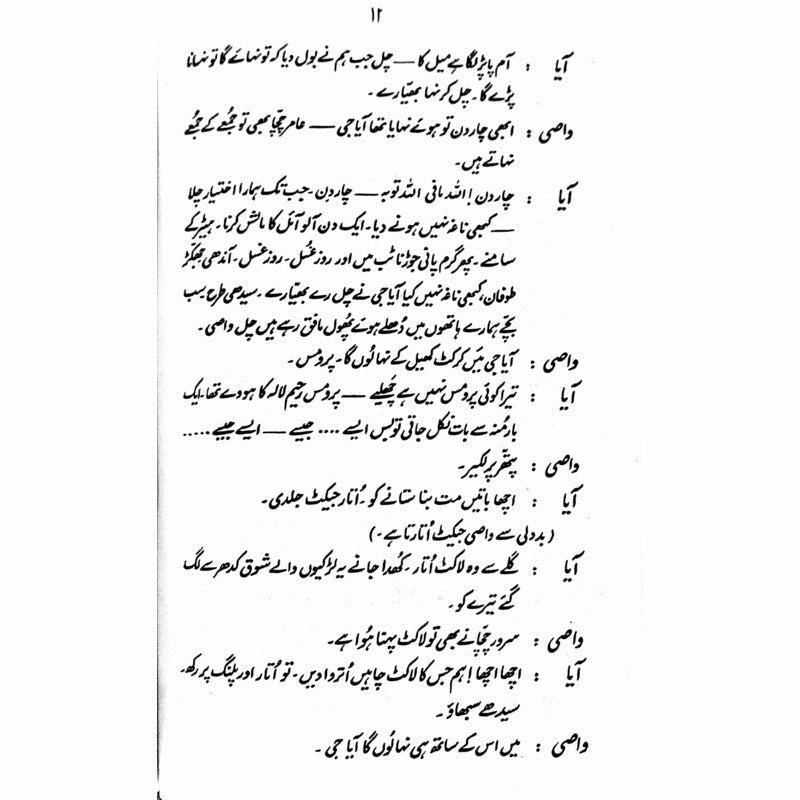 ۱۲
آیا : آم پاپڑ لگا ہے میل کا — چل جب ہم نے بول دیا کہ تو نہائے گا تو نہانا
پڑے گا۔ چل کر نہا بھیّا رے۔
واصی : ابھی چار دن تو ہوئے نہایا تھا آیا جی — عامر چچا بھی تو جمعے کے جمعے
نہاتے ہیں۔
آیا : چار دن! اللہ مافی اللہ توبہ — چار دن۔ جب تک ہمارا اختیار چلا
— کبھی ناغہ نہیں ہونے دیا۔ ایک دن آلو آئل کا مالش کرنا۔ ہیٹر کے
سامنے۔ پھر گرم پانی چوڑنا ٹب میں اور روز غسل۔ روز غسل۔ آندھی جھکڑ
طوفان، کبھی ناغہ نہیں کیا آیا جی نے چل رے بھیّا رے۔ سیدھی طرح سب
بچے ہمارے ہاتھوں میں دُھلے ہوئے پھول مافق رہے ہیں چل واصی۔
واصی : آیا جی میں کرکٹ کھیل کے نہاؤں گا۔ پرومس۔
آیا : تیرا کوئی پرومس نہیں ہے چَھیلے — پرومس رحیم لالہ کا ہووے تھا۔ ایک
بار مُنہ سے بات نکل جاتی تو بس ایسے .... جیسے — ایسے جیسے .....
واصی : پتھر پر لکیر۔
آیا : اچھا باتیں مت بنا ستانے کو۔ اُتار جیکٹ جلدی۔
(بددلی سے واصی جیکٹ اُتارتا ہے۔)
آیا : گلے سے وہ لاکٹ اُتار۔ کُھدا جانے یہ لڑکیوں والے شوق کدھر سے لگ
گئے تیرے کو۔
واصی : سرور چچا نے بھی تو لاکٹ پہنا ہُوا ہے۔
آیا : اچھا اچھا! ہم جس کا لاکٹ چاہیں اُتروا دیں۔ تو اُتار اور پلنگ پر رکھ۔
سیدھے سبھاؤ۔
واصی : میں اس کے ساتھ ہی نہاؤں گا آیا جی۔